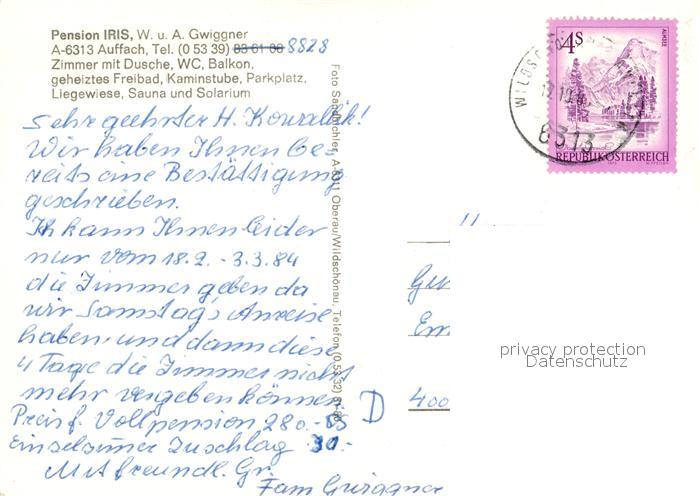 Pension IRIS, W. u. A. Gwiggner
A-6313 Auffach, Tel. (0 53 39) 83 61 86 8828
Zimmer mit Dusche, WC, Balkon,
geheiztes Freibad, Kaminstube, Parkplatz,
Liegewiese, Sauna und Solarium
Sehr geehrter H. Kowallik!
Wir haben Ihnen be-
reits eine Bestättigung
geschrieben.
Ich kann Ihnen leider
nur vom 18.2. - 3.3.84
die Zimmer geben da
wir Samstag's Anreise
haben, und dann diese
4 Tage die Zimmer nicht
mehr vergeben können
Preis f. Vollpension 280.- öS
Einzelzimer Zuschlag 30.-
Mit freundl. Gr.
Fam Gwiggner
Oberau/Wildschönau, Telefon (0 53 32)
4 S
ALMSEE
REPUBLIK ÖSTERREICH
6313
D
Em
400
privacy protection
Datenschutz